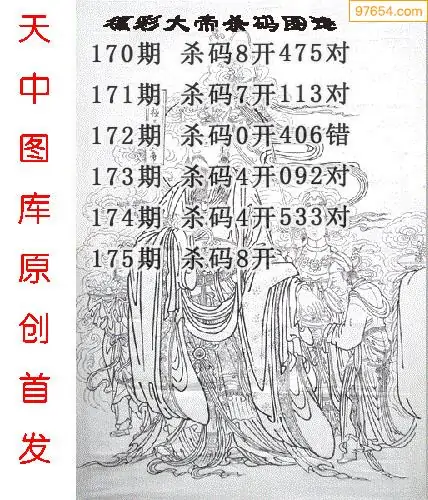 97654.com
福彩大帝杀码图迷
170期 杀码8开475对
171期 杀码7开113对
172期 杀码0开406错
173期 杀码4开092对
174期 杀码4开533对
175期 杀码8开
天中图库原创首发